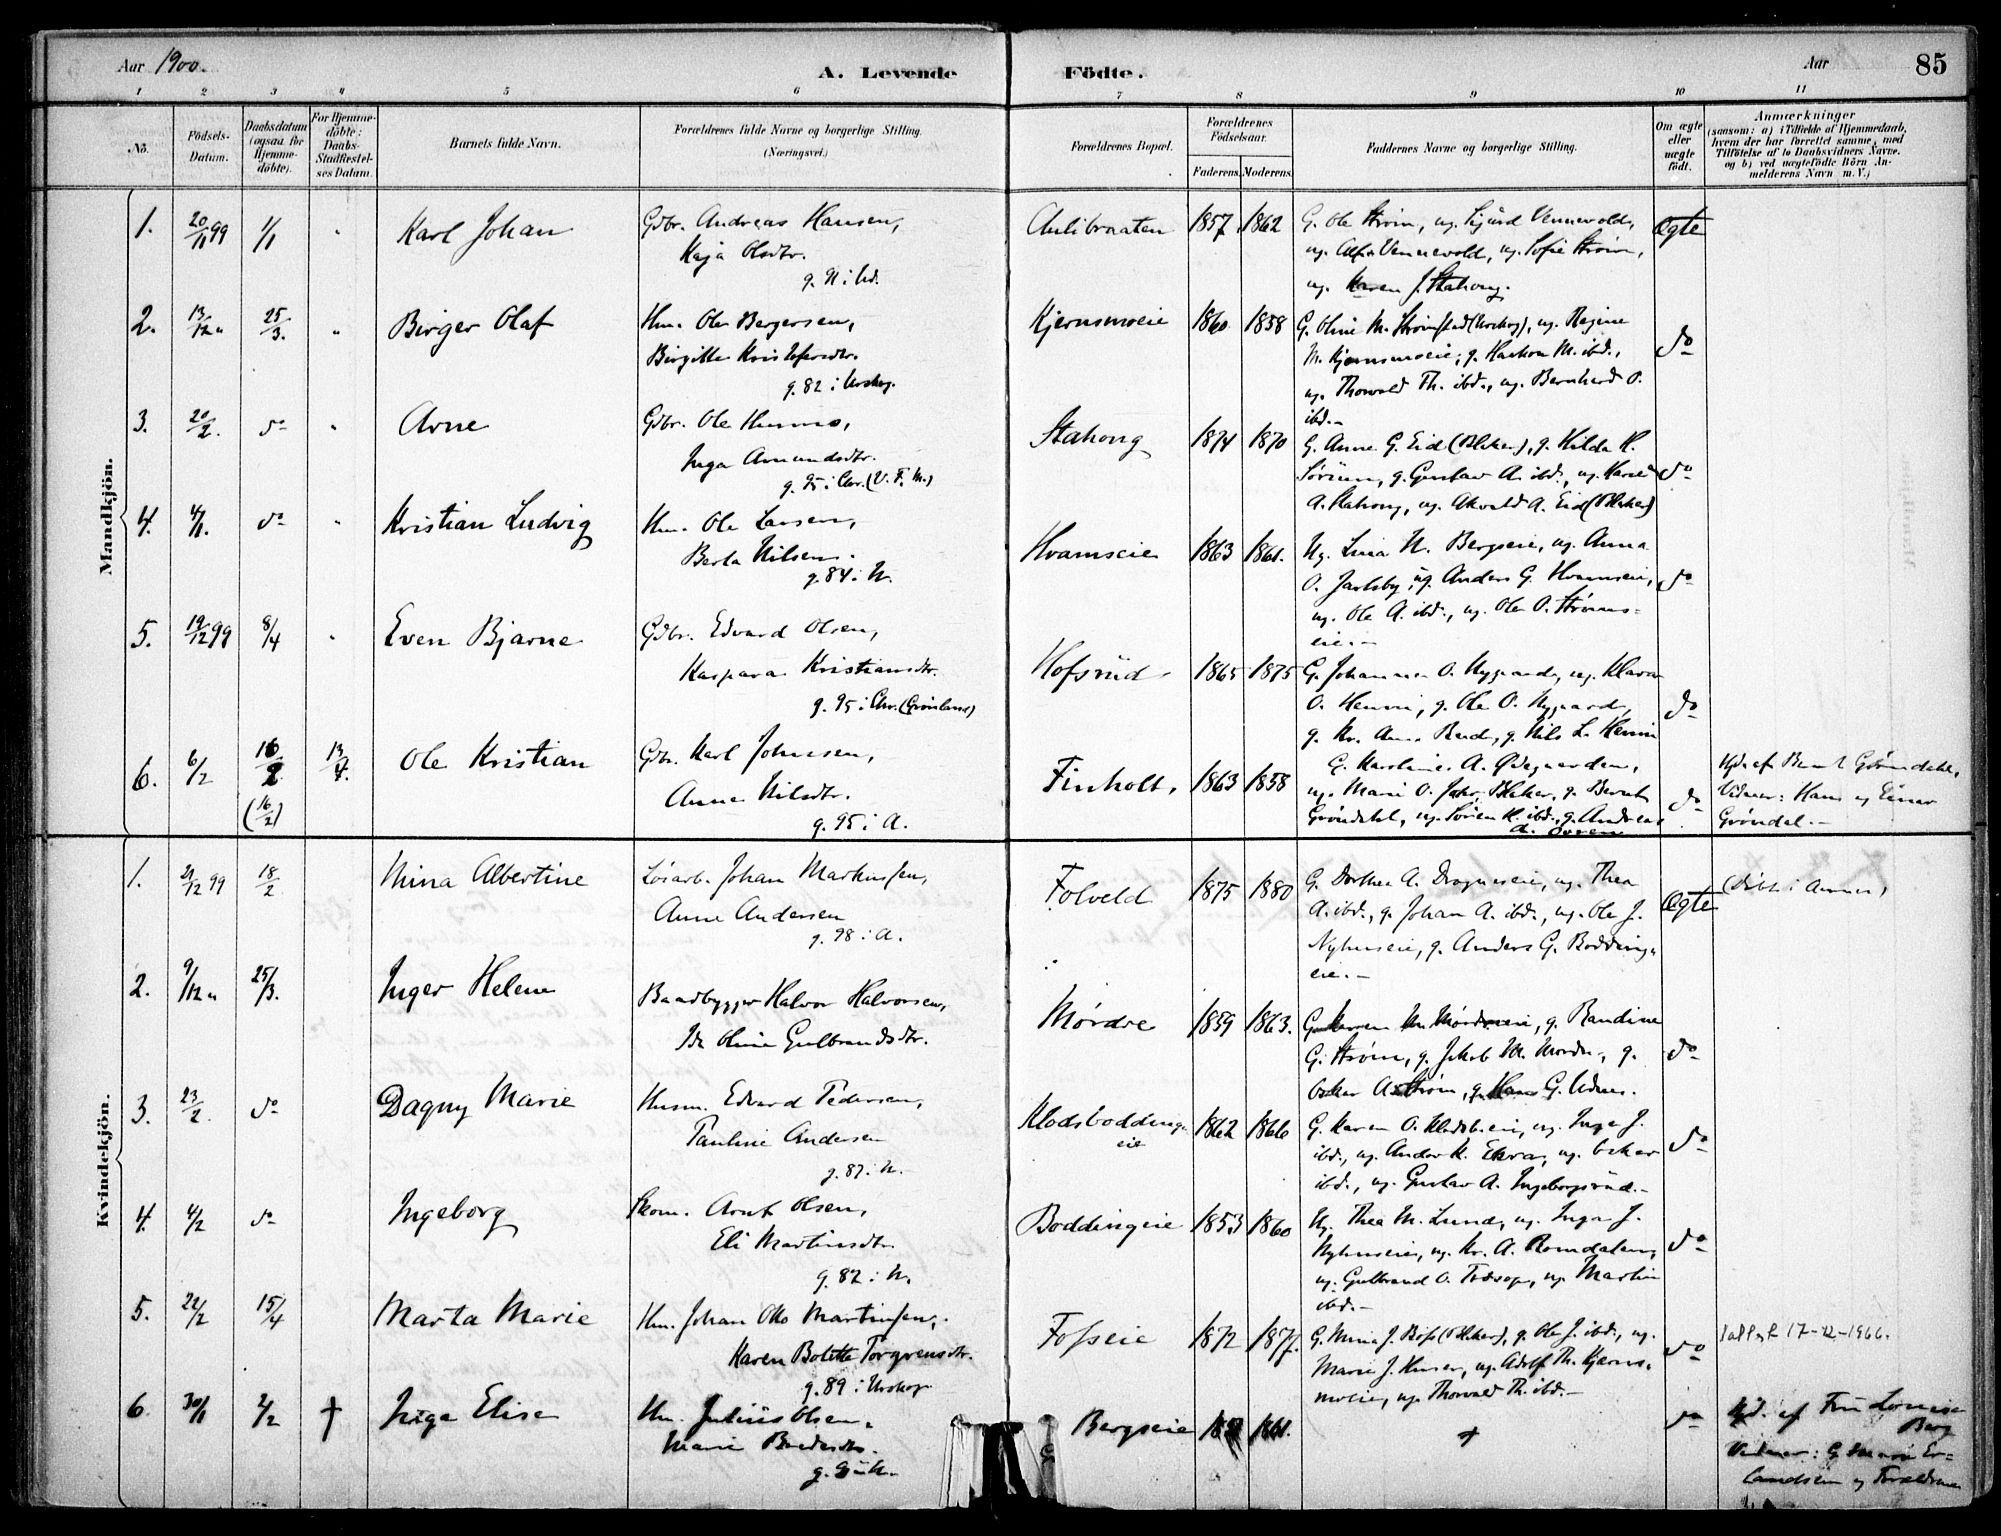 Aar 1900. A. Levende Födte. Aar 85
1 2 3 4 5 6 7 8 9 10 11
No. Födsels-Datum. Daabsdatum (ogsaa for Hjemmedöbte). For Hjemmedöbte: Daabs-Stadfæstelses Datum. Barnets fulde Navn. Forældrenes fulde Navne og borgerlige Stilling. (Næringsvei.) Forældrenes Bopæl. Forældrenes Födselsaar. Faderens. Moderens. Faddernes Navne og borgerlige Stilling. Om ægte eller uægte födt. Anmærkninger (saasom: a) i Tilfælde af Hjemmedaab, hvem der har forrettet samme, med Tilföielse af to Daabsvidners Navne, og b) ved uægtefödte Börn Anmelderens Navn m. V.)
Mandkjön.
1. 20/11 99 1/1 " Karl Johan Gdbr. Andreas Hansen, Aulibraaten 1857. 1862 G. Ole Strøm, ug. Sigurd Vennevold, Ægte
Kaja Olsdtr. ug. Alf Vennevold, ug. Sofie Strøm,
ug. Karen J. Stahong.
2. 13/12 " 25/3. " Birger Olaf Hm. Ole Bergersen, Kjernsmoeie 1860 1858 G. Oline M. Strømstad (Urskog), ug. Regine do
Birgitte Kristofersdtr. M. Kjernsmoeie, g. Haakon M. ibd.,
g. 82 i Urskog. ug. Thorvald Th. ibd., ug. Bernhard O.
ibd.
3. 20/2. do " Arne Gdbr. Ole Stahong 1874 1870 G. Anne G. Eid (Blaker), g. Hilda K.
Inga Amundsdtr. Sørum, g. Gustav A. ibd., ug. do
g. 95 i Chr. (V. F. M.) A. Stahong, ug. A. Eid (Blaker)
4. 4/1. do " Kristian Ludvig Hm. Ole Larsen, Hvamseie 1863 1861. Ug. Lina N. Bergseie, ug. Anna
Berta Nilsen. O. Jarlsby, ug. Anders G. Hvamseie, do
g. 84 i N. ug. Ole A. ibd., ug. Ole O. Strøms-
eie.
5. 19/12 99 8/4 " Even Bjarne Gdbr. Edvard Olsen, Hofsrud 1865 1875 G. Johannes O. Nygaard, ug. Klara
Kaspara Kristiansdtr. O. Henni, g. Ole O. Nygaard, do
g. 95 i Chr. (Grønland) g. Kr. Rud, g. Nils L. Henni
6. 6/2 16/2 (16/2) 13/4. Ole Kristian Gdbr. Karl Johnsen, Finholt. 1863 1858 G. Karoline A. Ødegaarden, Hjd. af Bernt Grøndahl,
Anne Nilsdtr. ug. Marie O. Blaker, g. Bernt do Vidner: Hans og Einar
g. 95 i A. Grøndahl, ug. Søren K. ibd., g. Andreas Grøndal.
Kvindekjön.
1. 21/12 99 18/2 Mina Albertine Løsarb. Johan Markussen, Folveld 1875 1880 G. Dorthea A. Dragnseie, ug. Thea Ægte
Anne Andersen A. ibd., g. Johan A. ibd., ug. Ole J.
g. 98 i A. Nyhuseie, g. Anders G. Bodding-
eie.
2. 9/12 " 25/3. Inger Helene Baadbygger Halvor Halvorsen, Mørdre 1859 1863. G. Karen M. Mørdreeie, g. Randine
Ida Oline Gulbrandsdtr. G. Strøm, g. Jakob M. Mordre, g. do
Oskar A. Strøm, g. Hans G. Udnes.
3. 23/2. do Dagny Marie Husm. Edvard Pedersen, Klodsbodding- 1862 1866 G. Karen O. Klodsbeie, ug. Inga J. do
Pauline Andersen eie ibd., ug. Andor K. Ekra, ug. Oskar
g. 87 i N. ibd., ug. Gustav A. Ingeborgsrud.
4. 4/2 do Ingeborg Skom. Arnt Olsen, Boddingeie 1853 1860 Ug. Thea M. Lund, ug. Inga J. do
Eli Martinsdtr. Nyhuseie, ug. Kr. A. Romdalen,
g. 82 i N. ug. Gulbrand O. ug. Martin
ibd.
5. 22/2 15/4 Marta Marie Hm. Johan Otto Martinsen, Fosseie 1872 1877. G. Mina J. Bøss (Blaker), g. Ole J. ibd., ug. do 17-12-1966.
Karen Bolette Torgersdtr. Marie J. Huser, ug. Adolf Th. Kjerns-
g. 89 i Urskog. moeie, ug. Thorvald Th. ibd.
6. 30/1 2/2 † Inga Elise Hm. Julius Olsen, Bergseie 1861. † do Hjd. af Fru Lovise
Marie Berg
Vidner: G. Marie Er-
landsen og Forældrene